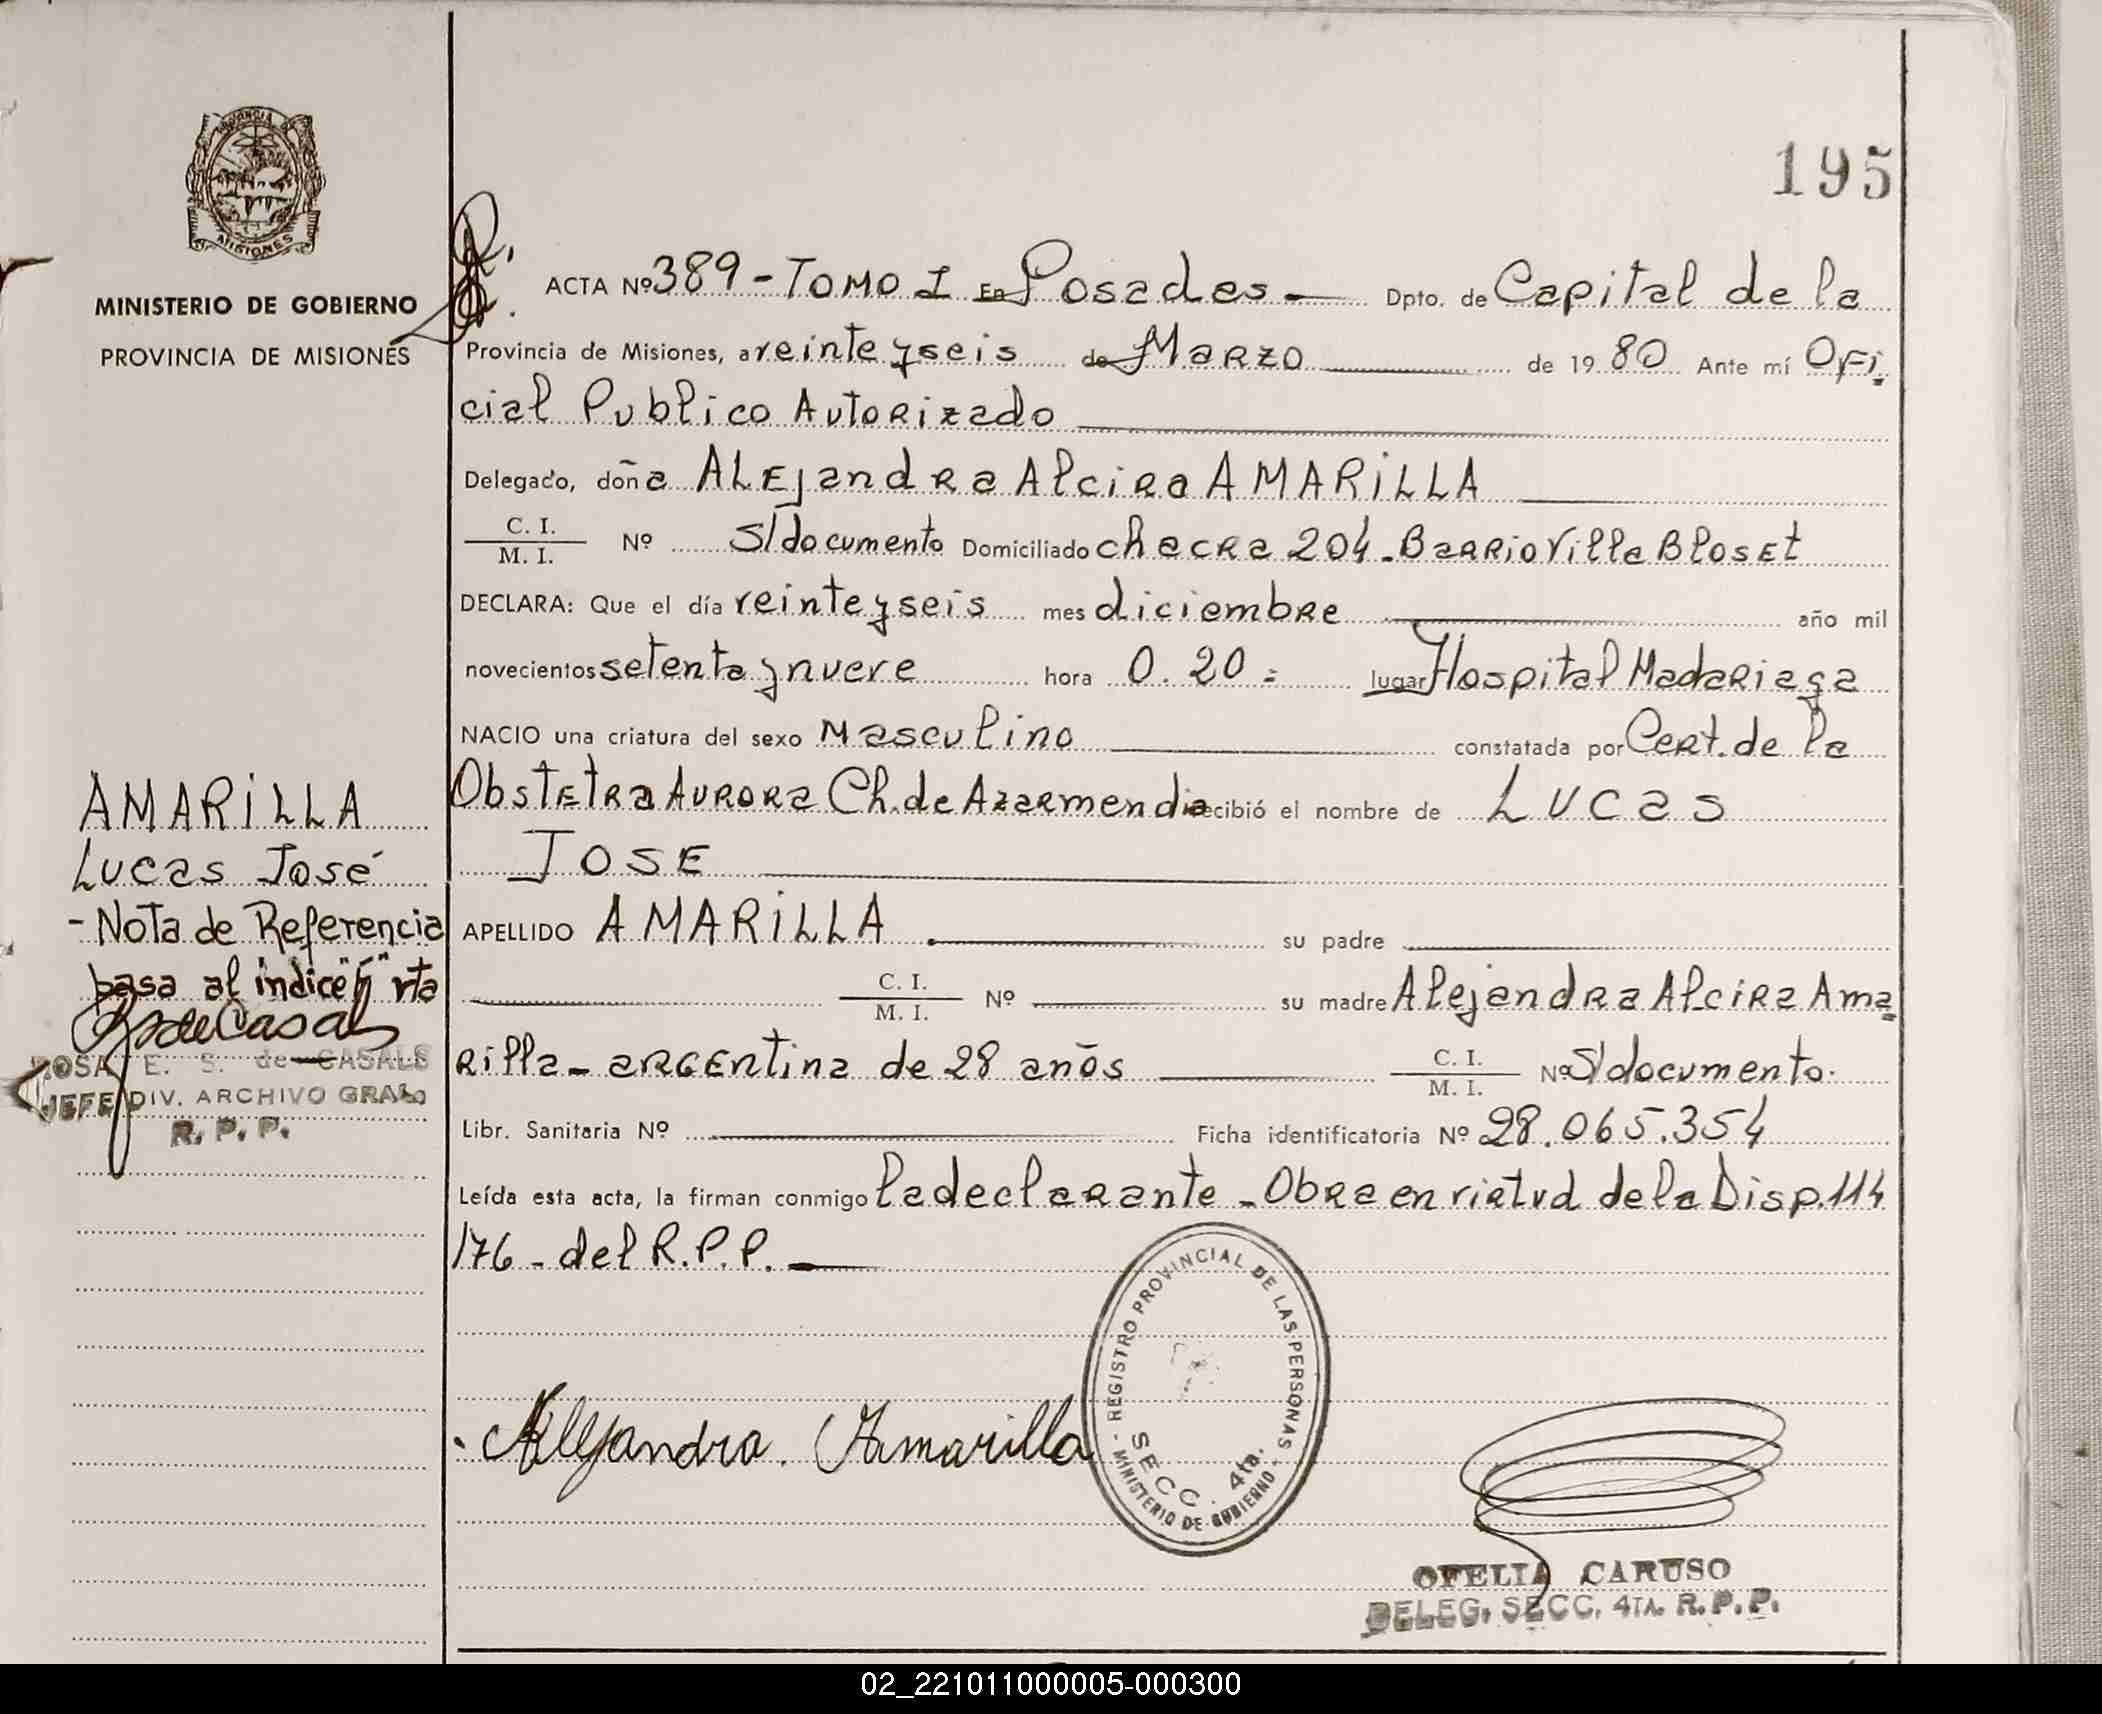 195
PROVINCIA DE
MISIONES
MINISTERIO DE GOBIERNO
PROVINCIA DE MISIONES
ACTA Nº 389 - TOMO I En Posadas — Dpto. de Capital de la
Provincia de Misiones, a veinte y seis de Marzo de 1980 Ante mí Ofi
cial Publico Autorizado
Delegado, doña ALEjandra Alcira AMARILLA
C. I.
M. I. Nº S/documento Domiciliado chacra 204 - Barrio Villa Bloset
DECLARA: Que el día veinte y seis mes diciembre año mil
novecientos setenta y nueve hora 0.20 = lugar Hospital Madariaga
NACIO una criatura del sexo Masculino constatada por Cert. de la
Obstetra Aurora Ch. de Azarmendia recibió el nombre de Lucas
JOSE
APELLIDO AMARILLA su padre
C. I.
M. I. Nº su madre Alejandra Alcira Ama
rilla - argentina de 28 años C. I.
M. I. Nº S/documento.
Libr. Sanitaria Nº Ficha identificatoria Nº 28.065.354
Leída esta acta, la firman conmigo la declarante - Obra en virtud de la Disp. 114
/76 - del R.P.P.
AMARILLA
Lucas José
- Nota de Referencia
pasa al índice
de Casals
ROSA E. S. de CASALS
JEFE DIV. ARCHIVO GRAL.
R. P. P.
Alejandra Amarilla
- REGISTRO PROVINCIAL DE LAS PERSONAS -
MINISTERIO DE GOBIERNO
SECC. 4ta.
OFELIA CARUSO
DELEG. SECC. 4TA. R. P. P.
02_221011000005-000300